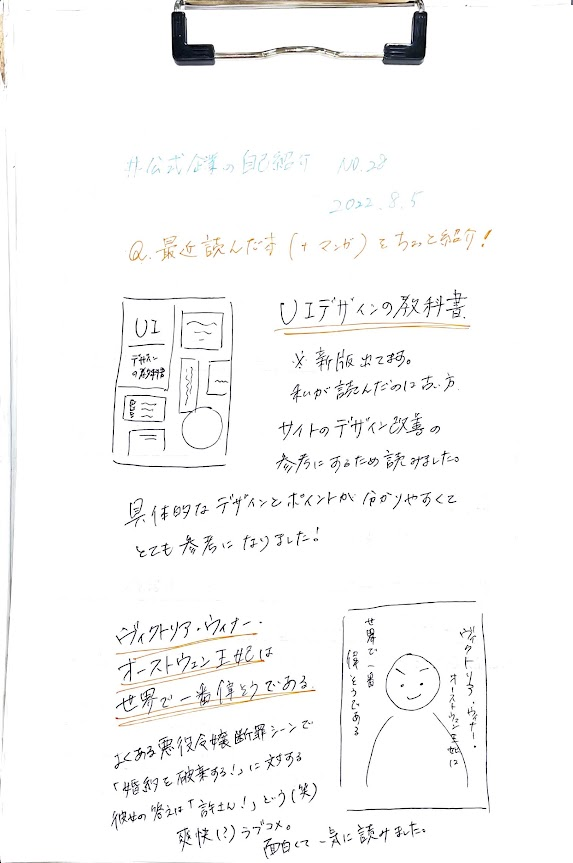 #公式企業の自己紹介 NO.28
2022.8.5
Q.最近読んだ本(+マンガ)をちょっと紹介!
UI
デザイン
の教科書
UIデザインの教科書
※新版出てます。
私が読んだのは古い方
サイトのデザイン改善の
参考にするため読みました。
具体的なデザインとポイントが分かりやすくて
とても参考になりました!
ヴィクトリア・ウィナー・
オーストウェン王妃は
世界で一番偉そうである
よくある悪役令嬢断罪シーンで
「婚約を破棄する!」に対する
彼女の答えは「許さん!」という(笑)
爽快(?)ラブコメ。
面白くて一気に読みました。
ヴィクトリア・ウィナー・
オーストウェン王妃は
世界で一番
偉そうである